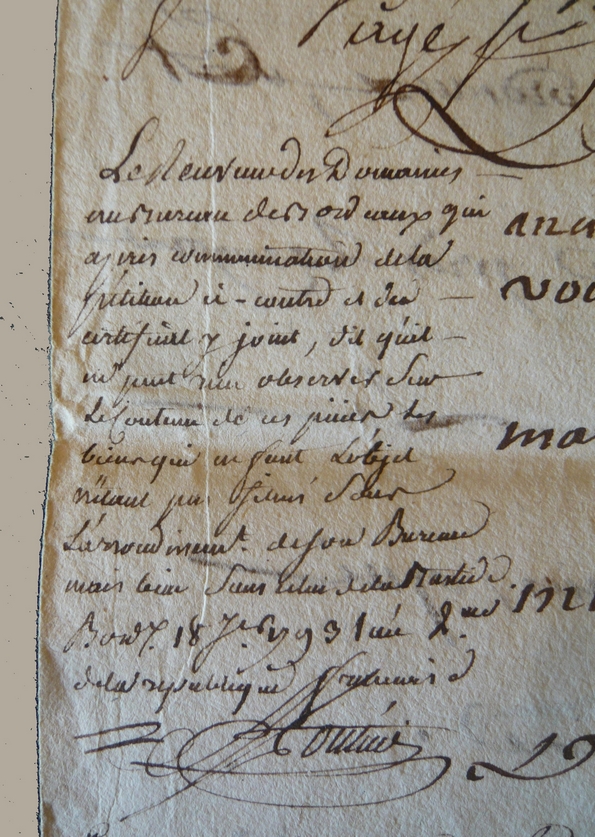 Le Receveur des Domaines
au Bureau de Bordeaux qui
après communication de la
petition ci-contre et des
certificat y joint, dit qu'il
ne peut rien observer sur
le contenu de ces pièces les
biens qui en font l'objet
n'étant pas situés dans
L'arrondissemt. de son Bureau
mais bien dans celui de la Bastide.
Bordx. 18 1793 l'an 2.me
de la république